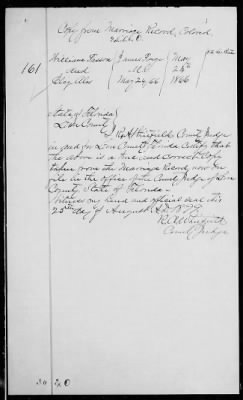 Copy from Marriage Record, Colored
161
And
James Page
M.G.
May 24, 66
May
24th
1866
State of Florida
Leon County
I, R.A. Whitfield County Judge
in and for Leon County Florida Certify that
the above is a true and correct Copy
taken from the Marriage Record now on
file in the office of the County Judge of Leon
County, State of Florida.
Witness my hand and official seal this
25th day of August A.D.
R.A. Whitfield
County Judge